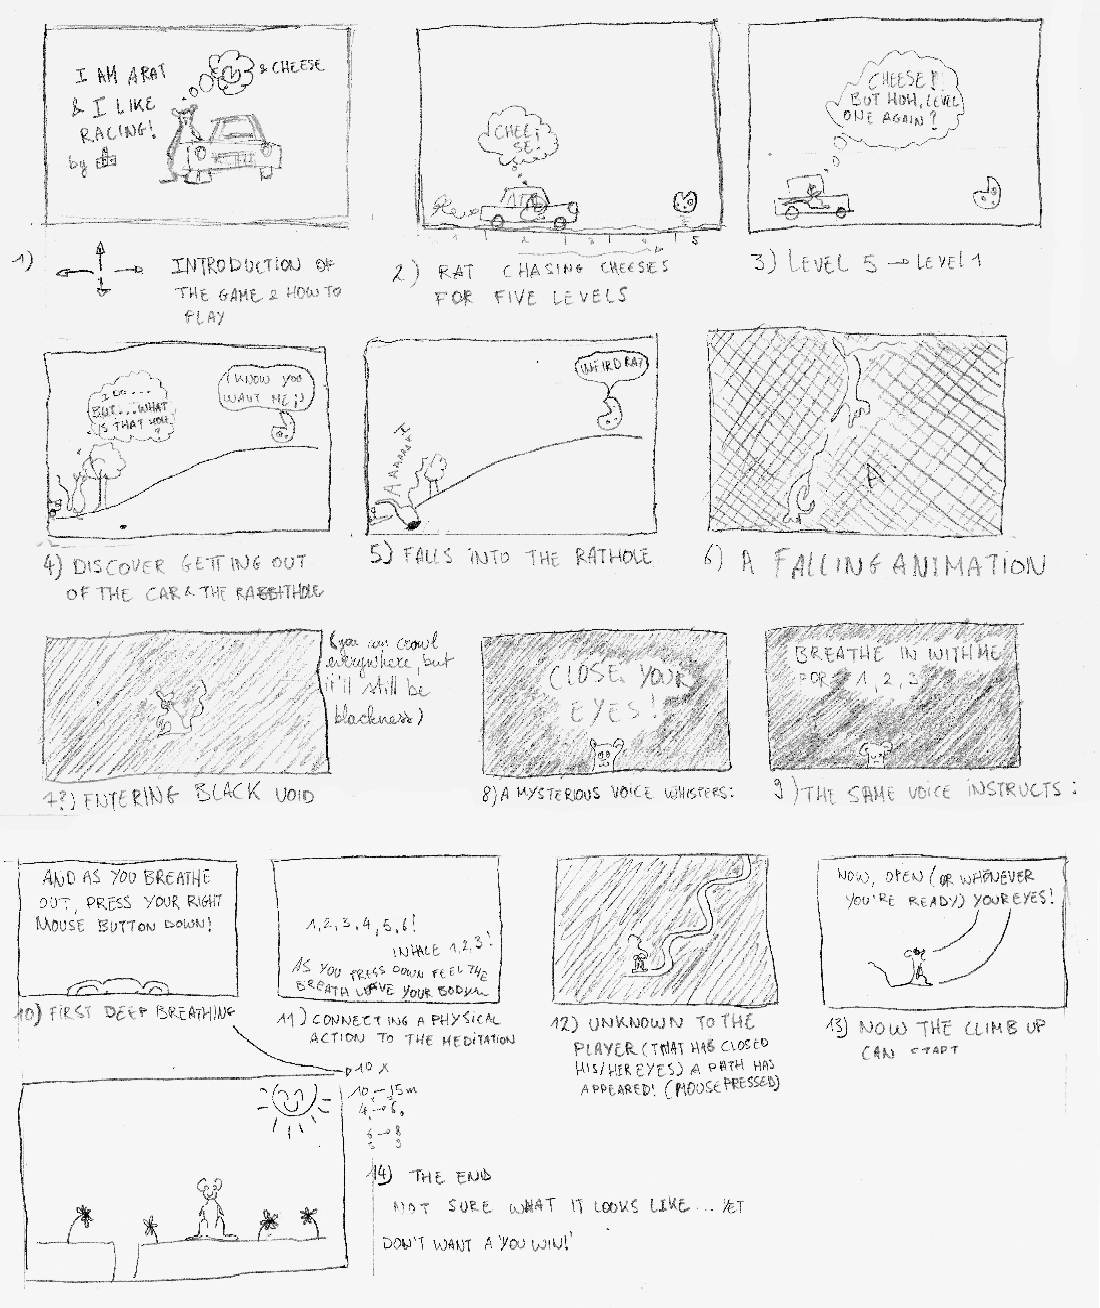 I AM A RAT
& I LIKE
RACING!
by
& CHEESE
1)
INTRODUCTION OF
THE GAME & HOW TO
PLAY
CHEE
SE!
1 2 3 4 5
2) RAT CHASING CHEESES
FOR FIVE LEVELS
CHEESE!
BUT HUH, LEVEL
ONE AGAIN?
3) LEVEL 5 → LEVEL 1
I DO...
BUT...WHAT
IS THAT HUH
?
I KNOW YOU
WANT ME ;)
4) DISCOVER GETTING OUT
OF THE CAR & THE RABBITHOLE
WEIRD RAT
AAAAAAH
5) FALLS INTO THE RATHOLE
A
6) A FALLING ANIMATION
(you can crawl
everywhere, but
it'll still be
blackness)
7?) ENTERING BLACK VOID
CLOSE YOUR
EYES!
8) A MYSTERIOUS VOICE WHISPERS:
BREATHE IN WITH ME
FOR 1, 2, 3
9) THE SAME VOICE INSTRUCTS:
AND AS YOU BREATHE
OUT, PRESS YOUR RIGHT
MOUSE BUTTON DOWN!
10) FIRST DEEP BREATHING
1, 2, 3, 4, 5, 6!
INHALE 1, 2, 3!
AS YOU PRESS DOWN FEEL THE
BREATH LEAVE YOUR BODY
11) CONNECTING A PHYSICAL
ACTION TO THE MEDITATION
12) UNKNOWN TO THE
PLAYER (THAT HAS CLOSED
HIS/HER EYES) A PATH HAS
APPEARED! (MOUSE PRESSED)
NOW, OPEN (OR WHENEVER
YOU'RE READY) YOUR EYES!
13) NOW THE CLIMB UP
CAN START
10 x
10 - 15m
4 → 6
6 → 8
14) THE END
NOT SURE WHAT IT LOOKS LIKE... YET
DON'T WANT A 'YOU WIN!'